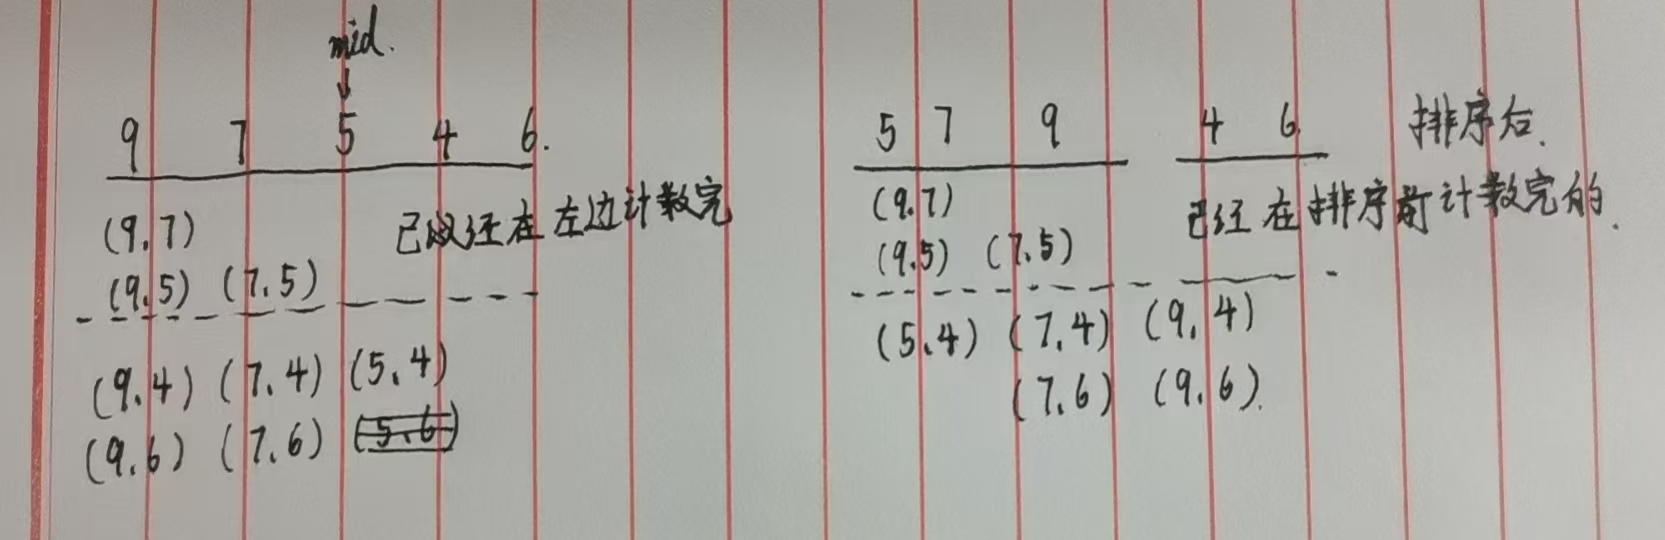 mid.
9 7 5 4 6.
(9,7) 已经在左边计数完
(9,5) (7,5)
(9,4) (7,4) (5,4)
(9,6) (7,6) (5,6)
5 7 9 4 6 排序后.
(9,7) 已经在排序前计数完的.
(9,5) (7,5)
(5,4) (7,4) (9,4)
(7,6) (9,6).